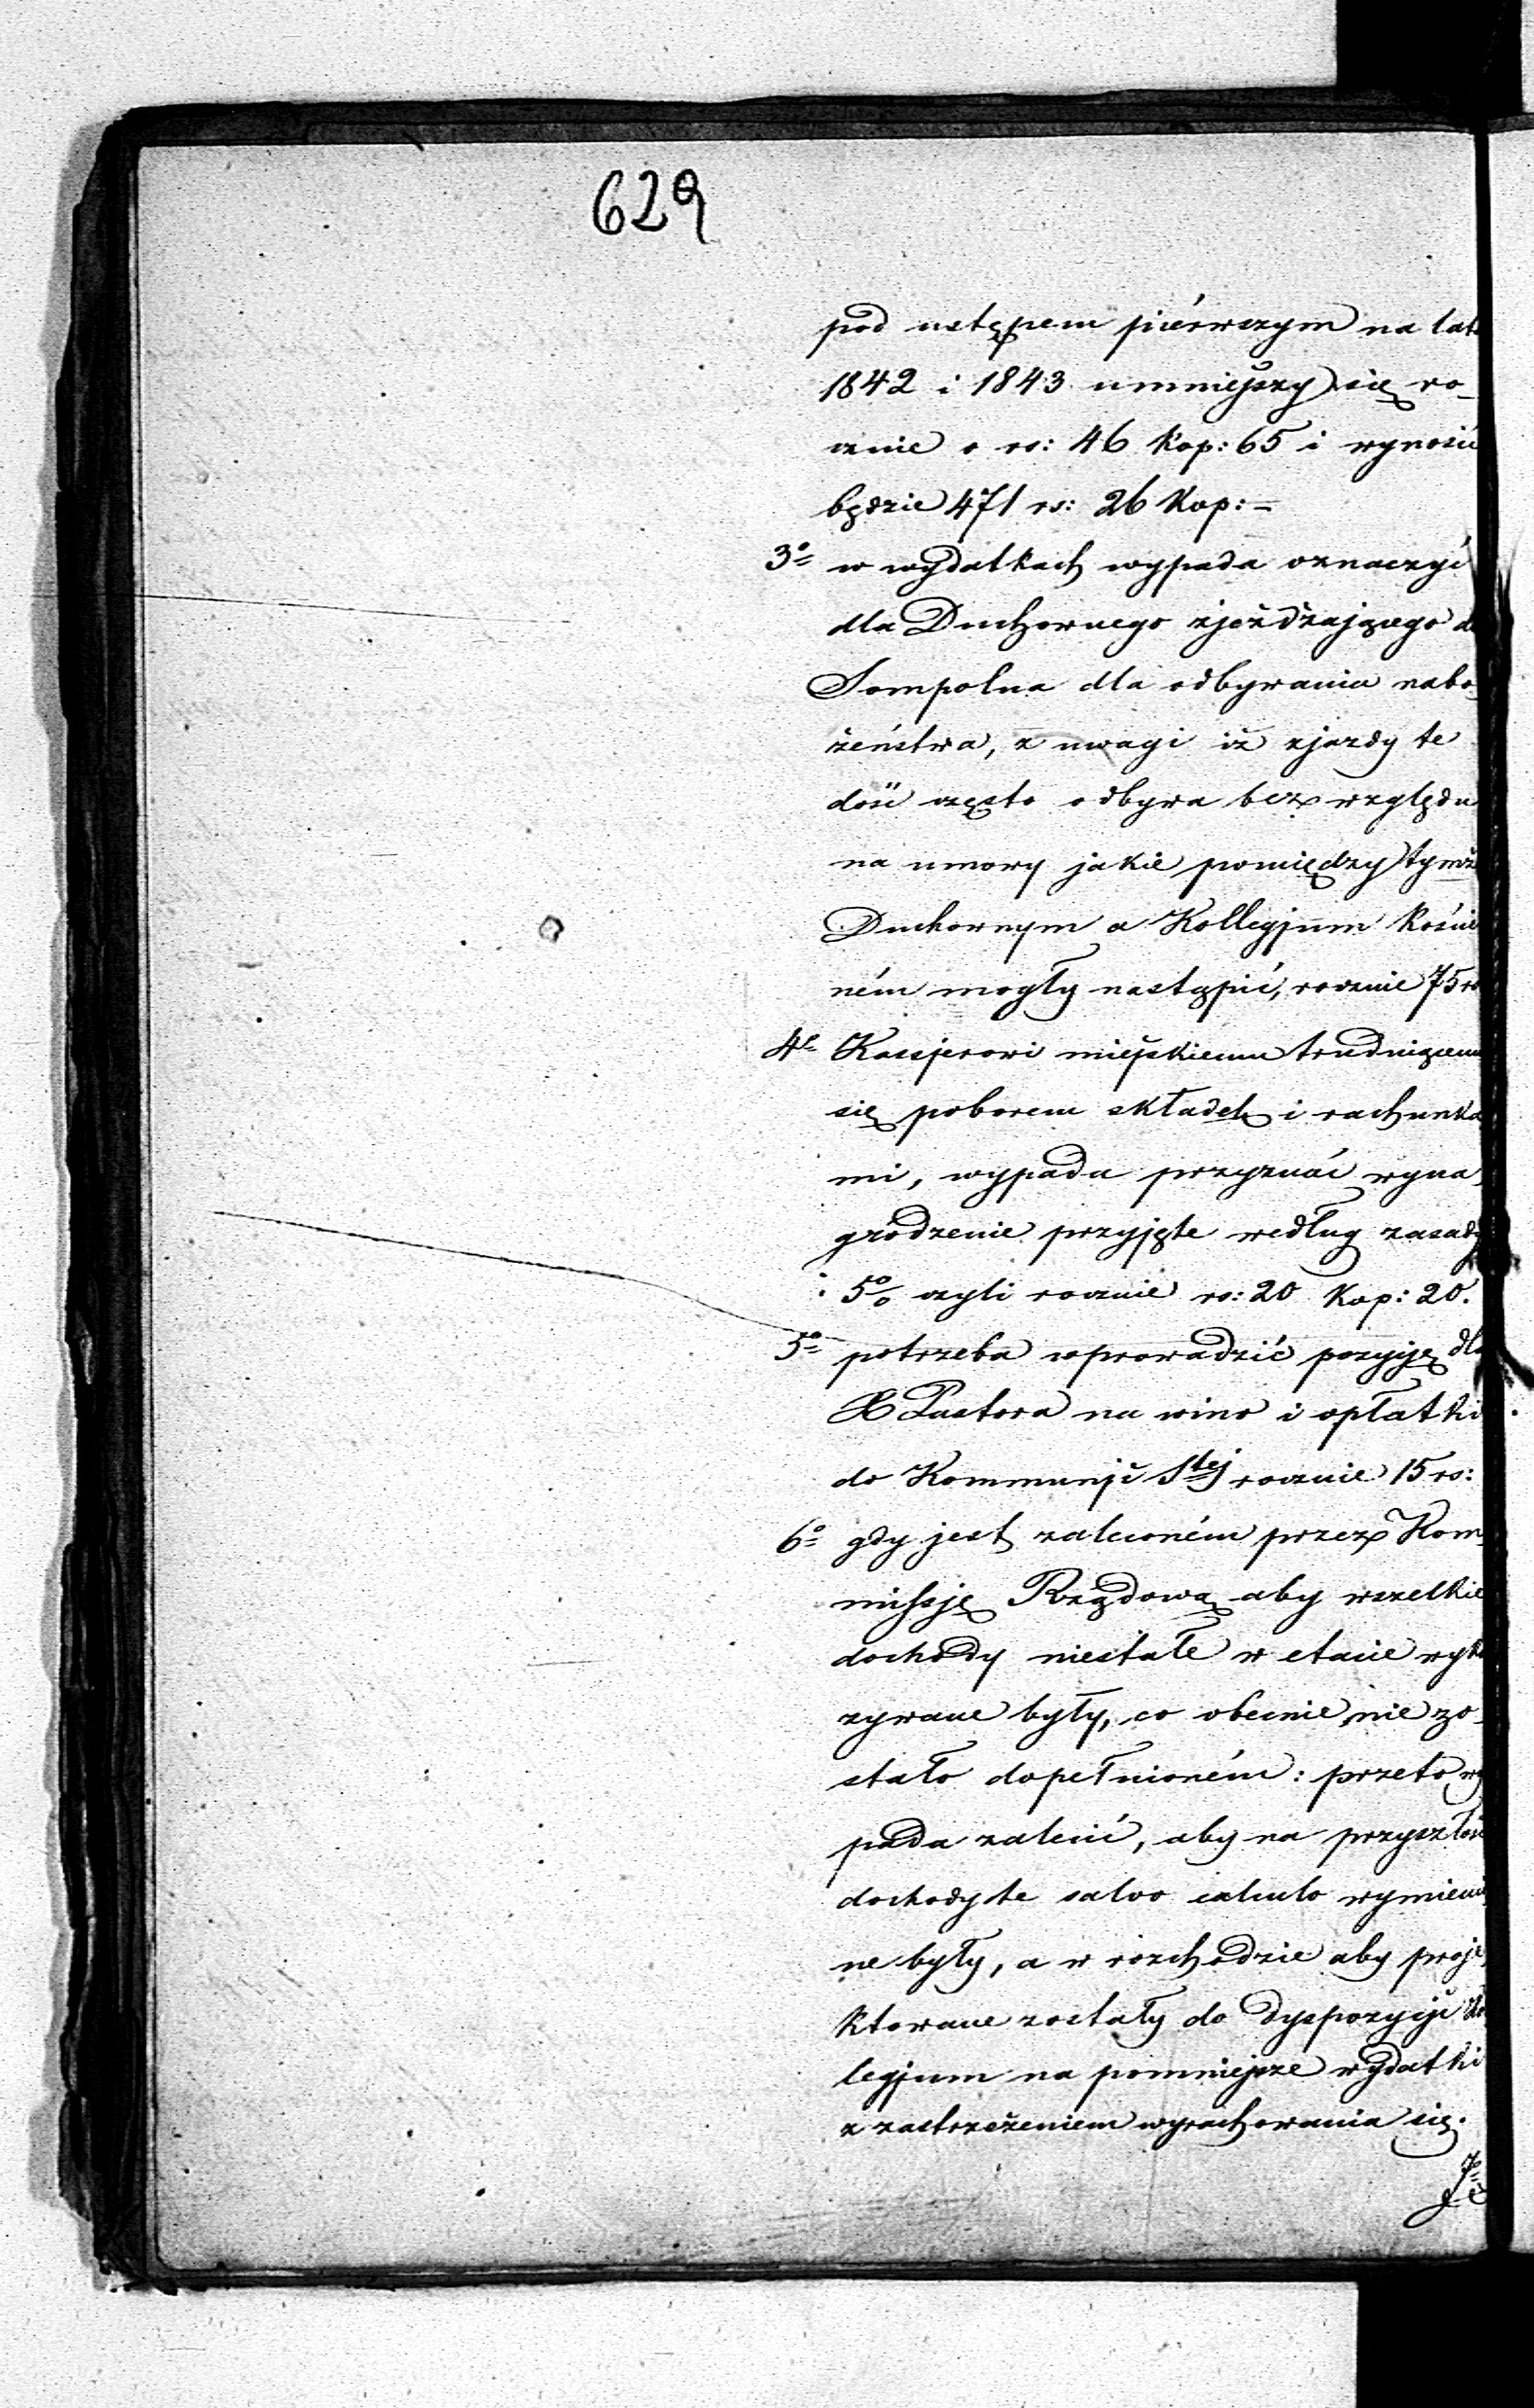 629
pod ustępem piérwszym na lat
1842 i 1843 umniejszy się ro-
cznie o rs: 46 kop: 65 i wynosić
będzie 471 rs: 26 kop:=
3º w wydatkach wypada oznaczyć
dla Duchownego zjeżdżającego d
Sompolna dla odbywania nabo-
żeństwa, z uwagi iż zjazdy te
dość często odbywa bez względu
na umowy jakie pomiędzy tymż
Duchownym a Kollegjum Kości
ném mogły nastąpić, rocznie 75 rs
4º Kassjerowi miejskiemu trudniącemu
się poborem składek i rachunka
mi, wypada przyznać wyna-
grodzenie przyjęte według zasady
5% czyli rocznie rs: 20 kop: 20.
5º potrzeba wprowadzić pozycję dla
X Pastora na wino i opłatki
do Kommunji Stej rocznie 15 rs:
6º gdy jest zaleconém przez Kom-
missję Rządową aby wszelkie
dochody niestałe w etacie wyka
zywane były, co obecnie nie zo-
stało dopełnioném: przeto wy
pada zalecić, aby na przyszłość
dochody te salvo calculo wymienio
ne były, a w rozchodzie aby proje
ktowane zostały do dyspozycji Ko
legjum na pomniejsze wydatki
z zastrzeżeniem wyrachowania się.
7º